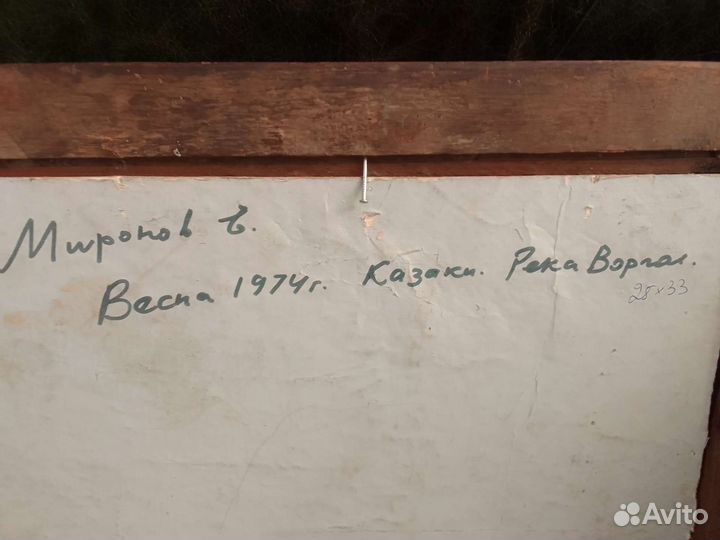 Миронов Е.
Весна 1974г. Казаки. Река Воргол.
28x33
Avito